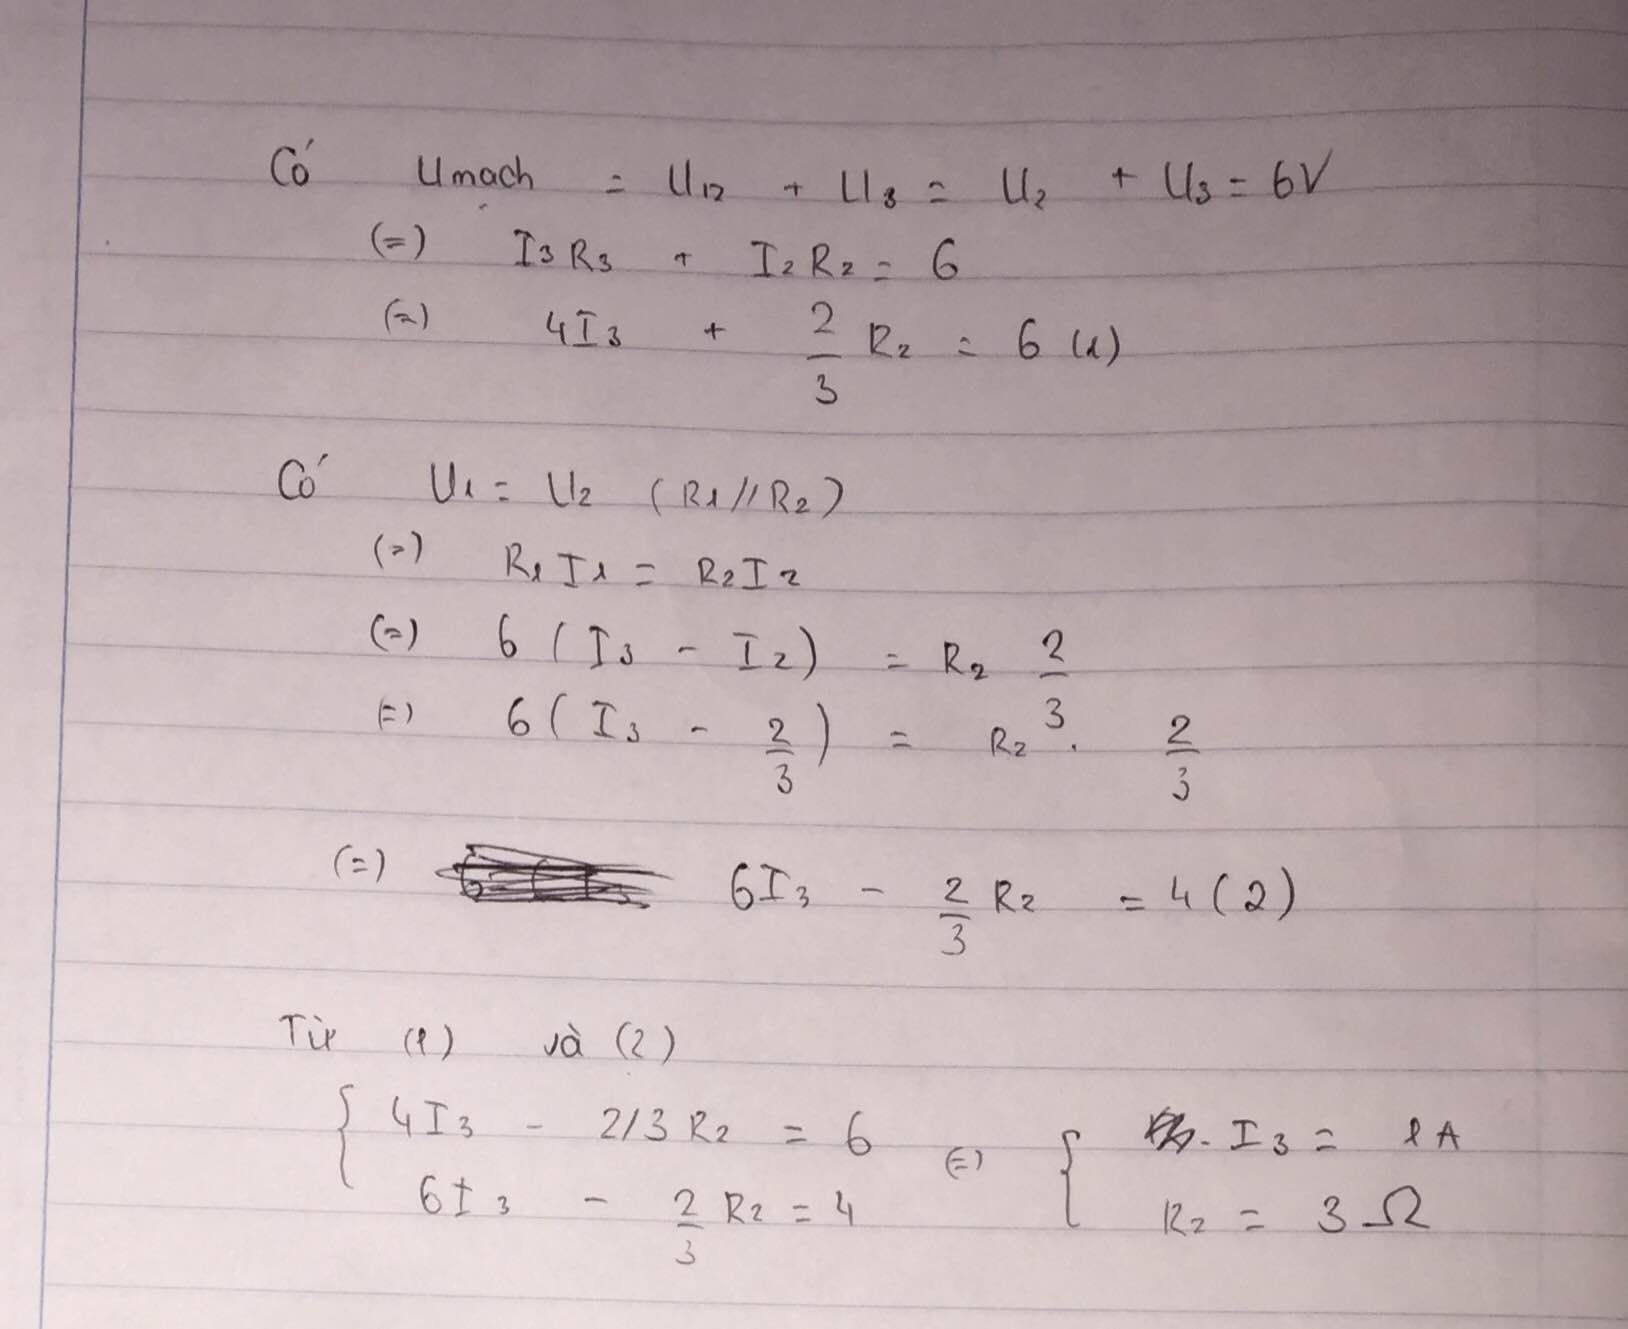 Có Umạch = U12 + U3 = U2 + U3 = 6V
(=) I3R3 + I2R2 = 6
(=) 4I3 + 2/3 R2 = 6 (1)
Có U1 = U2 (R1//R2)
(=) R1I1 = R2I2
(=) 6(I3 - I2) = R2 2/3
(=) 6(I3 - 2/3) = R2 . 2/3
(=) 6I3 - 2/3 R2 = 4 (2)
Từ (1) và (2)
{ 4I3 - 2/3 R2 = 6 (=) { I3 = 1A
6I3 - 2/3 R2 = 4 R2 = 3Ω